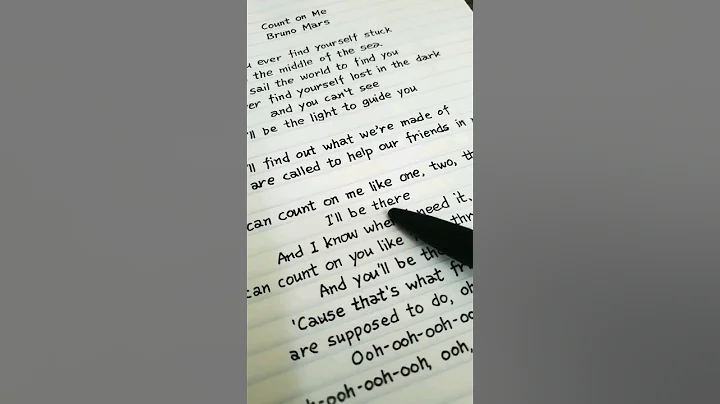 Count on Me
Bruno Mars
ever find yourself stuck
the middle of the sea.
sail the world to find you
find yourself lost in the dark
and you can't see
be the light to guide you
find out what we're made of
are called to help our friends in
can count on me like one, two,
I'll be there
And I know when I need it,
can count on you like
And you'll be
'Cause that's what
are supposed to do, oh
Ooh-ooh-ooh-oo
-ooh-ooh-ooh, ooh,